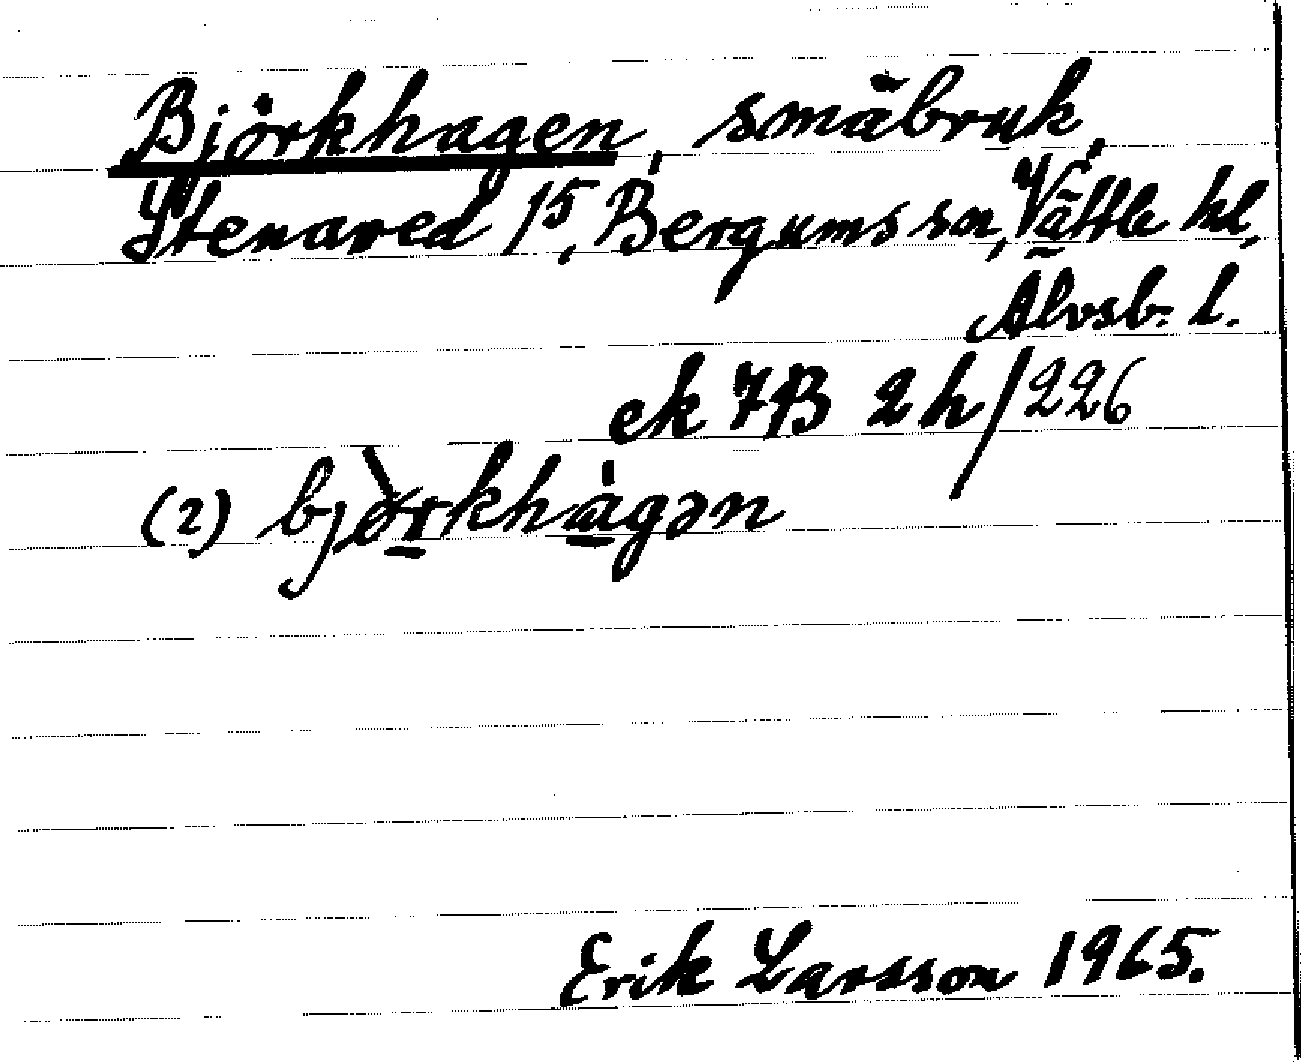 Björkhagen, småbruk,
Stenared 15, Bergums sn, Vättle hd,
Älvsb. l.
ek 7B 2h/226
(2) bjòrkhágən
Erik Larsson 1965.